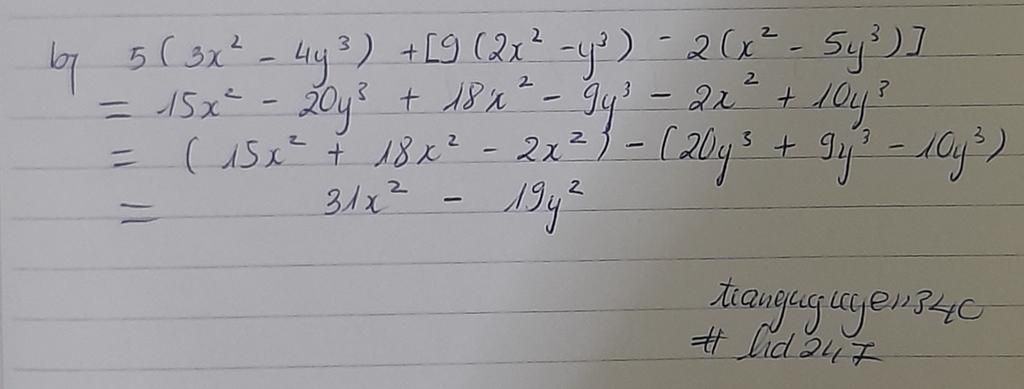 b) 5(3x² - 4y³) + [9(2x² - y³) - 2(x² - 5y³)]
= 15x² - 20y³ + 18x² - 9y³ - 2x² + 10y³
= (15x² + 18x² - 2x²) - (20y³ + 9y³ - 10y³)
= 31x² - 19y²
# hd247